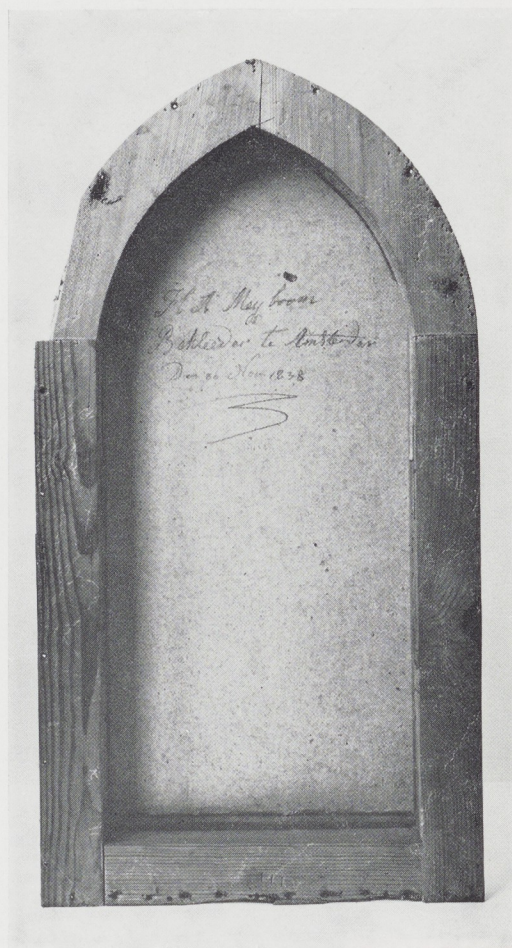 H A Meyboom
Bekleeder te Amsterdam
Den Nov 1838